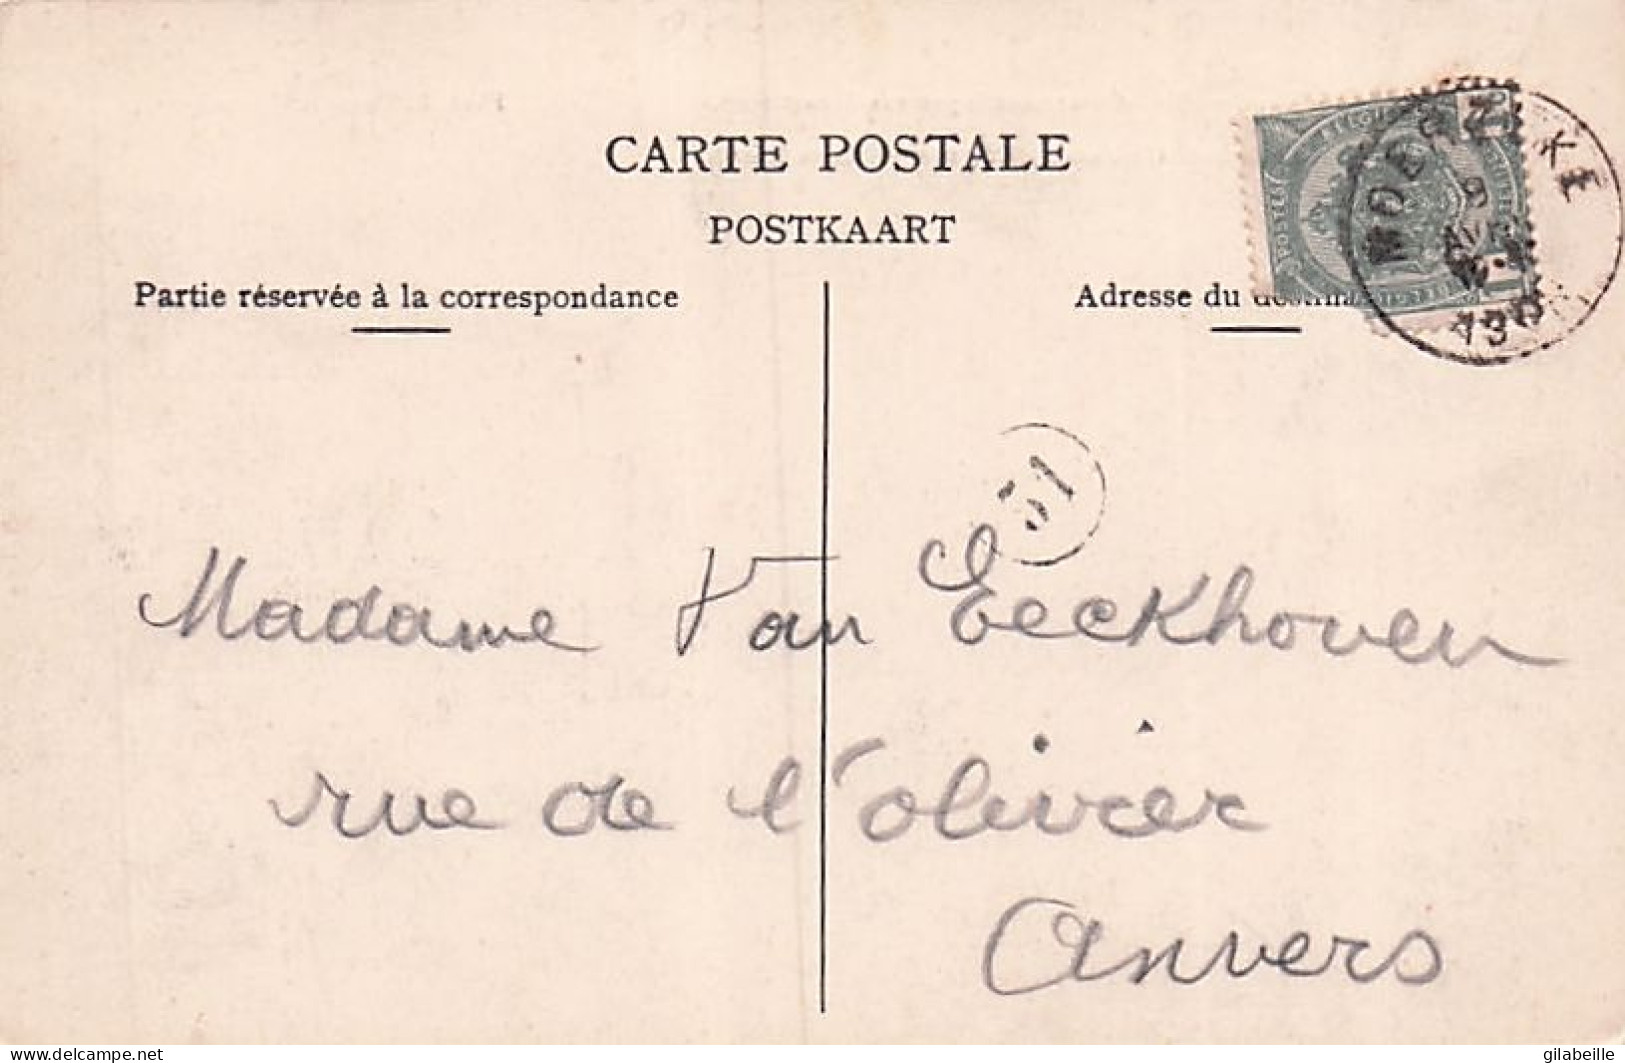 CARTE POSTALE
POSTKAART
Partie réservée à la correspondance
Adresse du
51
Madame Van Eeckhoven
rue de l'olivier
Anvers
www.delcampe.net
gilabeille